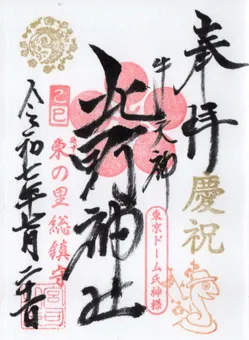 奉拝
慶祝
牛天神
北野神社
東京ドーム氏神様
乙巳
東の里総鎮守
令和七年